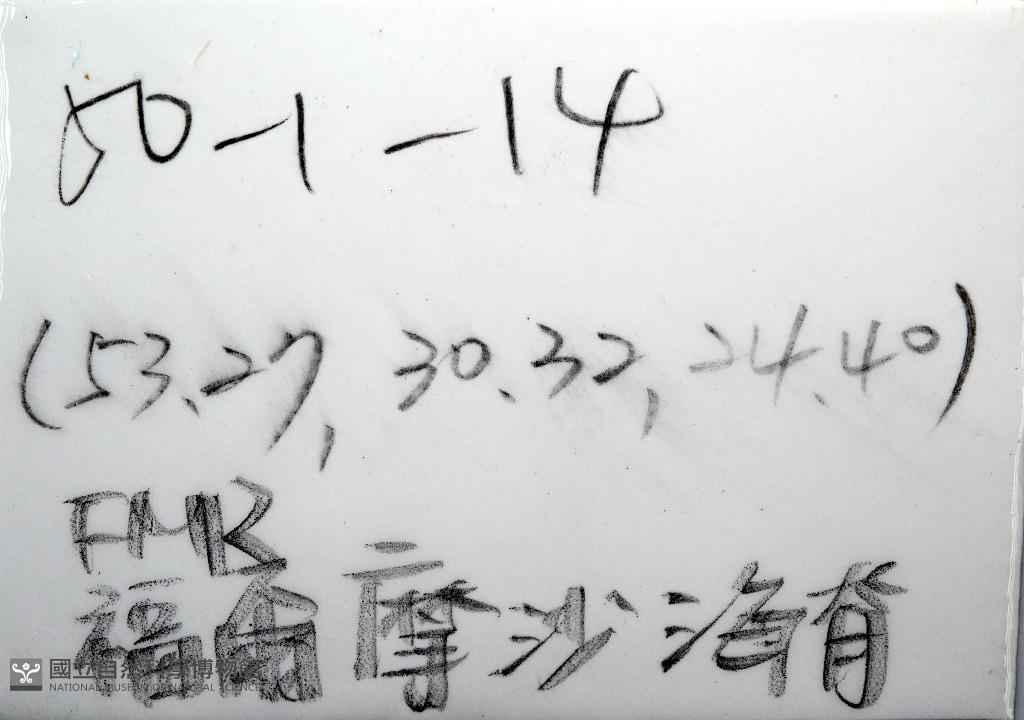 50-1-14
(53.27, 30.32, 24.40)
FMR
福爾摩沙海脊
國立自然科學博物館
NATIONAL MUSEUM OF NATURAL SCIENCE